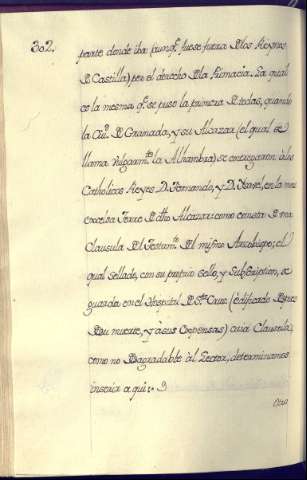 302.
parte donde iba (aunq.e fuese fuera de los Reynos
de Castilla) por el derecho de la Primacia. La qual
es la mesma q.e se puso la primera de todas, quando
la Ciu.d de Granada, y su Alcazar (el qual se
llama vulgarm.te la Alhambra) se entregaron á los
Catholicos Reyes D. Fernando, y D. Ysavel, en la mas
excelsa Torre de dho Alcazar: como consta de una
Clausula del Testam.to del mismo Arzobispo; el
qual sellado, con su proprio sello, y Subscripcion, se
guarda en el Hospital de S.ta Cruz (edificado despues
de su muerte, y á sus Expensas) cuia Clausula,
como no desagradable al Lector, determinamos
inserir a qui: